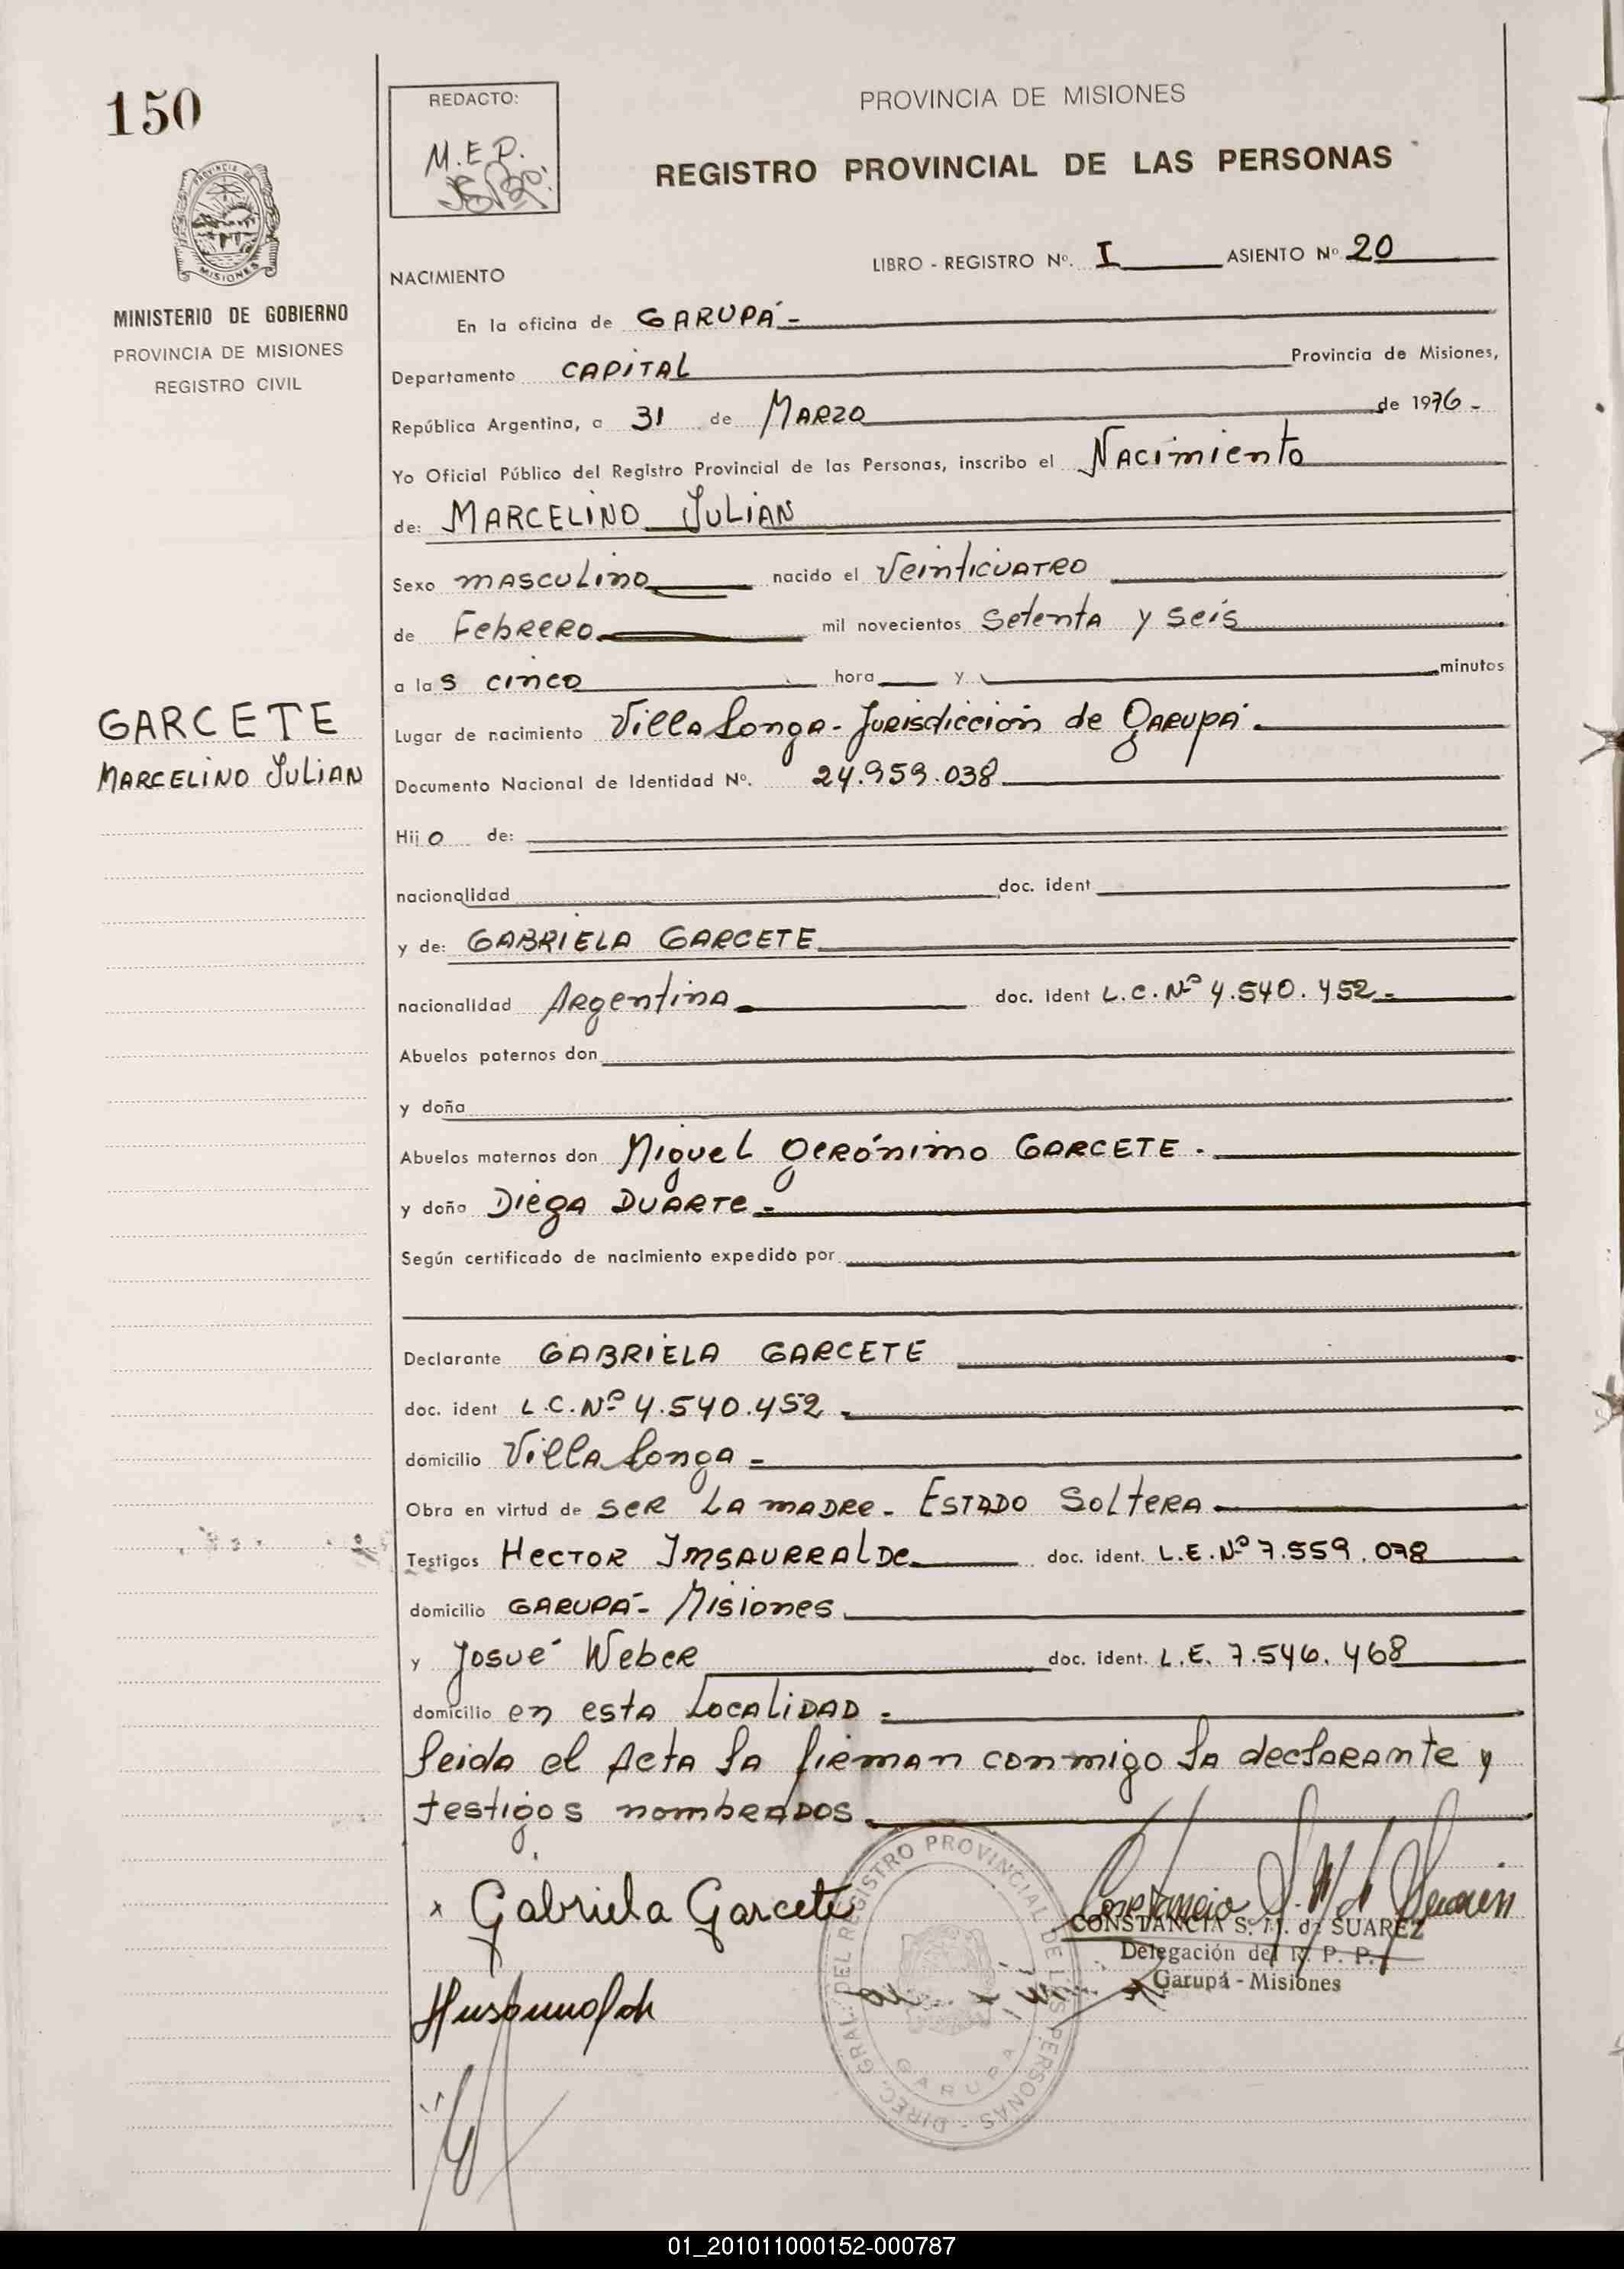 150
REDACTO:
M.E.P.
PROVINCIA DE MISIONES
REGISTRO PROVINCIAL DE LAS PERSONAS
PROVINCIA DE
MISIONES
MINISTERIO DE GOBIERNO
PROVINCIA DE MISIONES
REGISTRO CIVIL
LIBRO - REGISTRO Nº. I ASIENTO Nº 20
NACIMIENTO
En la oficina de GARUPÁ-
Departamento CAPITAL Provincia de Misiones,
República Argentina, a 31 de MARZO de 1976-
Yo Oficial Público del Registro Provincial de las Personas, inscribo el NACimiento
de: MARCELINO JULIAN
Sexo mAsculino nacido el VeinticuATRO
de FebRERO mil novecientos SetentA y Seis
a las cinco hora y minutos
GARCETE
MARCELINO JULIAN
Lugar de nacimiento VillA LongA- JuRisdicción de GARUPÁ.
Documento Nacional de Identidad Nº. 24.959.038
Hijo de:
nacionalidad doc. ident
y de: GABRIELA GARCETE
nacionalidad ARgentinA doc. ident L.C.Nº 4.540.452-
Abuelos paternos don
y doña
Abuelos maternos don Miguel GeRónimo GARCETE.
y doña DiegA DUARTe-
Según certificado de nacimiento expedido por
Declarante GABRIELA GARCETE
doc. ident L.C.Nº 4.540.452
domicilio VillA LongA-
Obra en virtud de SeR LA mADRe- ESTADO SolteRA
Testigos HecTOR ImsAURRAlDe doc. ident. L.E.Nº 7.559.078
domicilio GARUPÁ- Misiones
y Josué WebeR doc. ident. L.E. 7.546.468
domicilio en estA LocALiDAD-
LeidA el ActA LA fiRmAn conmigo LA declARAnte y
testigos nombRADOS
Gabriela Garcete
CONSTANCIA S. M. de SUAREZ
Delegación del R. P. P.
Garupá - Misiones
DIREC. GRAL. DEL REGISTRO PROVINCIAL DE LAS PERSONAS -
GARUPA
01_201011000152-000787